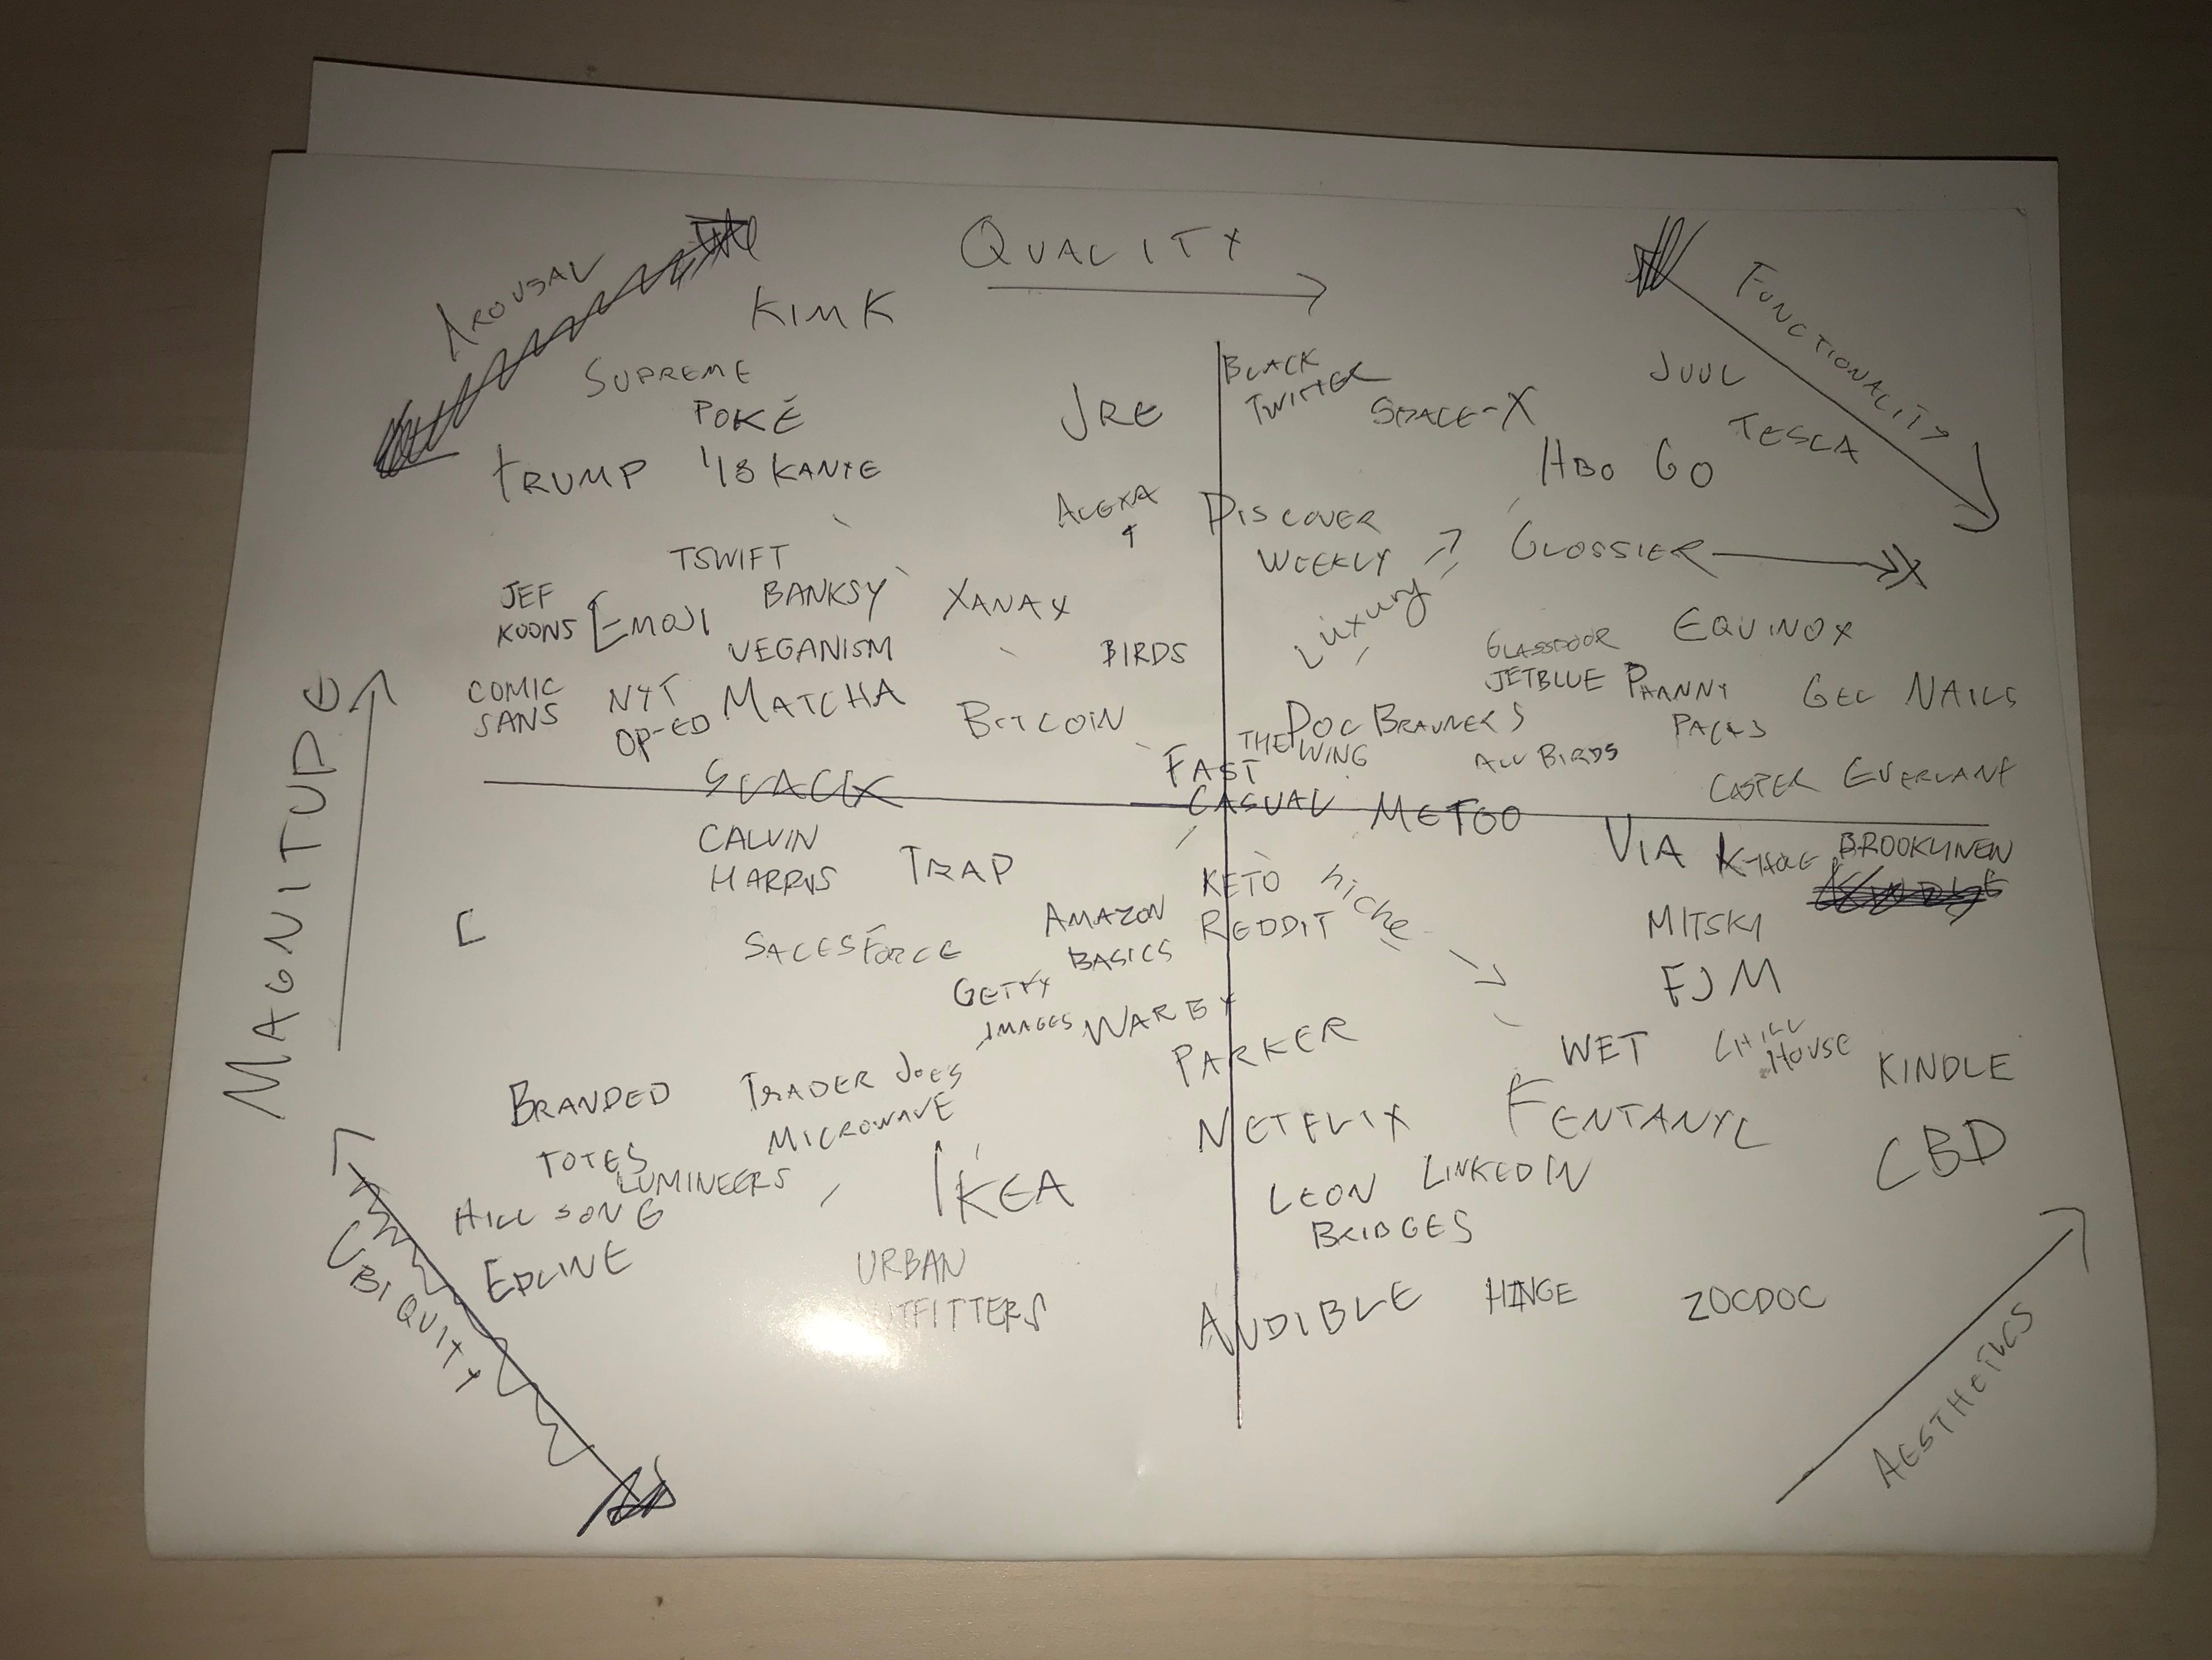 AROUSAL
QUALITY
FUNCTIONALITY
KIM K
SUPREME
POKÉ
TRUMP
'18 KANYE
JRE
BLACK
TWITTER
SPACE-X
JUUL
TESLA
HBO GO
ALEXA
DISCOVER
WEEKLY
GLOSSIER
TSWIFT
JEF
KOONS
EMOJI
BANKSY
XANAX
Luxury
VEGANISM
BIRDS
GLASSDOOR
EQUINOX
JETBLUE
PHANNY
PACKS
GEL NAILS
COMIC
SANS
NYT
OP-ED
MATCHA
BITCOIN
DOC BRAUNERS
THE WING
ALL BIRDS
FAST
CASUAL
CASPER
EVERLANE
MAGNITUDE
SLACK
METOO
CALVIN
HARRIS
TRAP
VIA
K-HOLE
BROOKLINEN
KETO
niche
AMAZON
BASICS
REDDIT
MITSKI
SALESFORCE
FJM
GETTY
IMAGES
WARBY
PARKER
WET
CHILL
HOUSE
KINDLE
BRANDED
TOTES
TRADER JOES
MICROWAVE
NETFLIX
FENTANYL
LUMINEERS
IKEA
LEON
BRIDGES
LINKEDIN
CBD
HILLSONG
EDLINE
URBAN
OUTFITTERS
AUDIBLE
HINGE
ZOCDOC
UBIQUITY
AESTHETICS